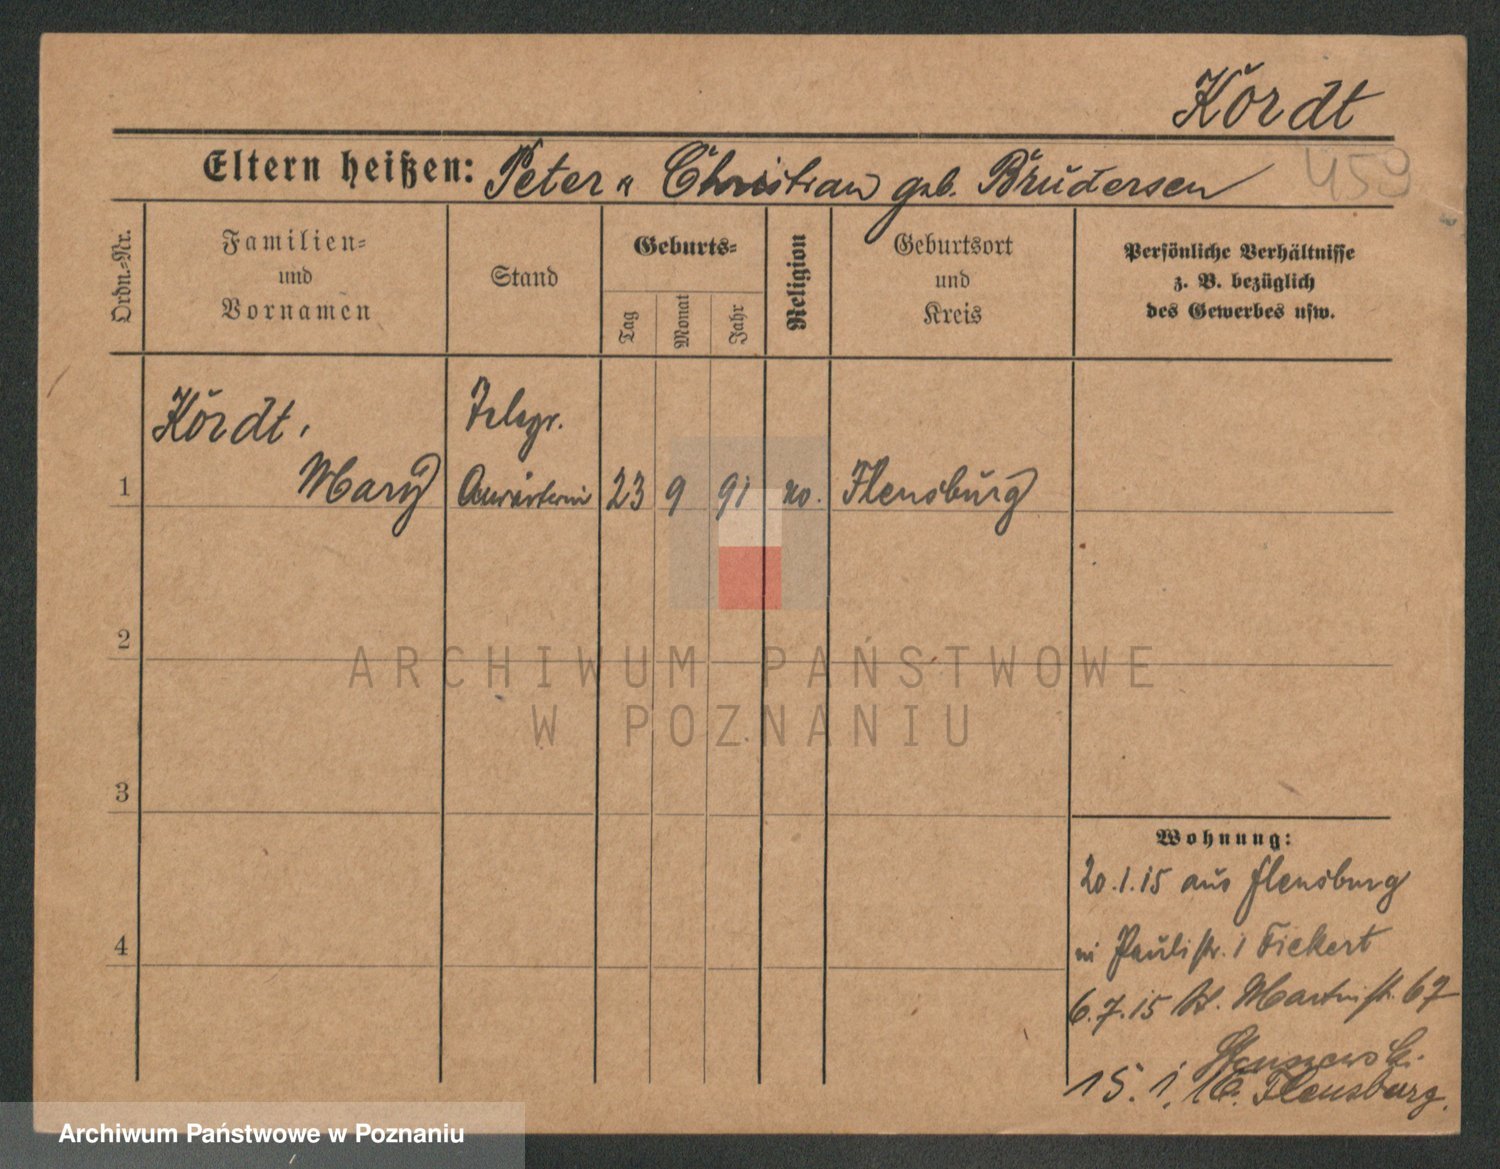 Kördt
Eltern heißen: Peter u Christian geb. Brudersen
459
Ordn.-Nr.
Familien-
und
Vornamen
Stand
Geburts-
Tag
Monat
Jahr
Religion
Geburtsort
und
Kreis
Persönliche Verhältnisse
z. B. bezüglich
des Gewerbes usw.
Kördt,
Mary
Telegr.
Anwärterin
1
23
9
91
Flensburg
2
ARCHIWUM PAŃSTWOWE
W POZNANIU
3
Wohnung:
20.1.15 aus Flensburg
Paulistr. 1 Fickert
4
6.7.15 St. Martinstr. 67
15. 1. 16. Flensburg.
Archiwum Państwowe w Poznaniu